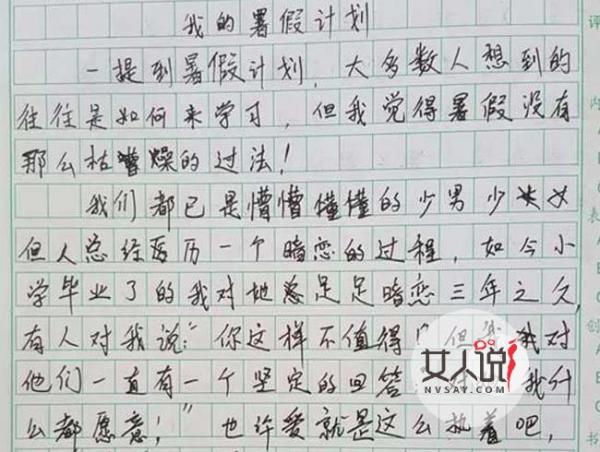 我的暑假计划
一提到暑假计划,大多数人想到的
往往是如何来学习,但我觉得暑假没有
那么枯燥的过法!
我们都已是慒慒懂懂的少男少女
但人总经历一个暗恋的过程,如今小
学毕业了的我对她总足足暗恋三年之久,
有人对我说:“你这样不值得 但我对
他们一直有一个坚定的回答 我什
么都愿意!”也许爱就是这么执着吧,
评
内
表
创
书
女人说
NVSAY.COM